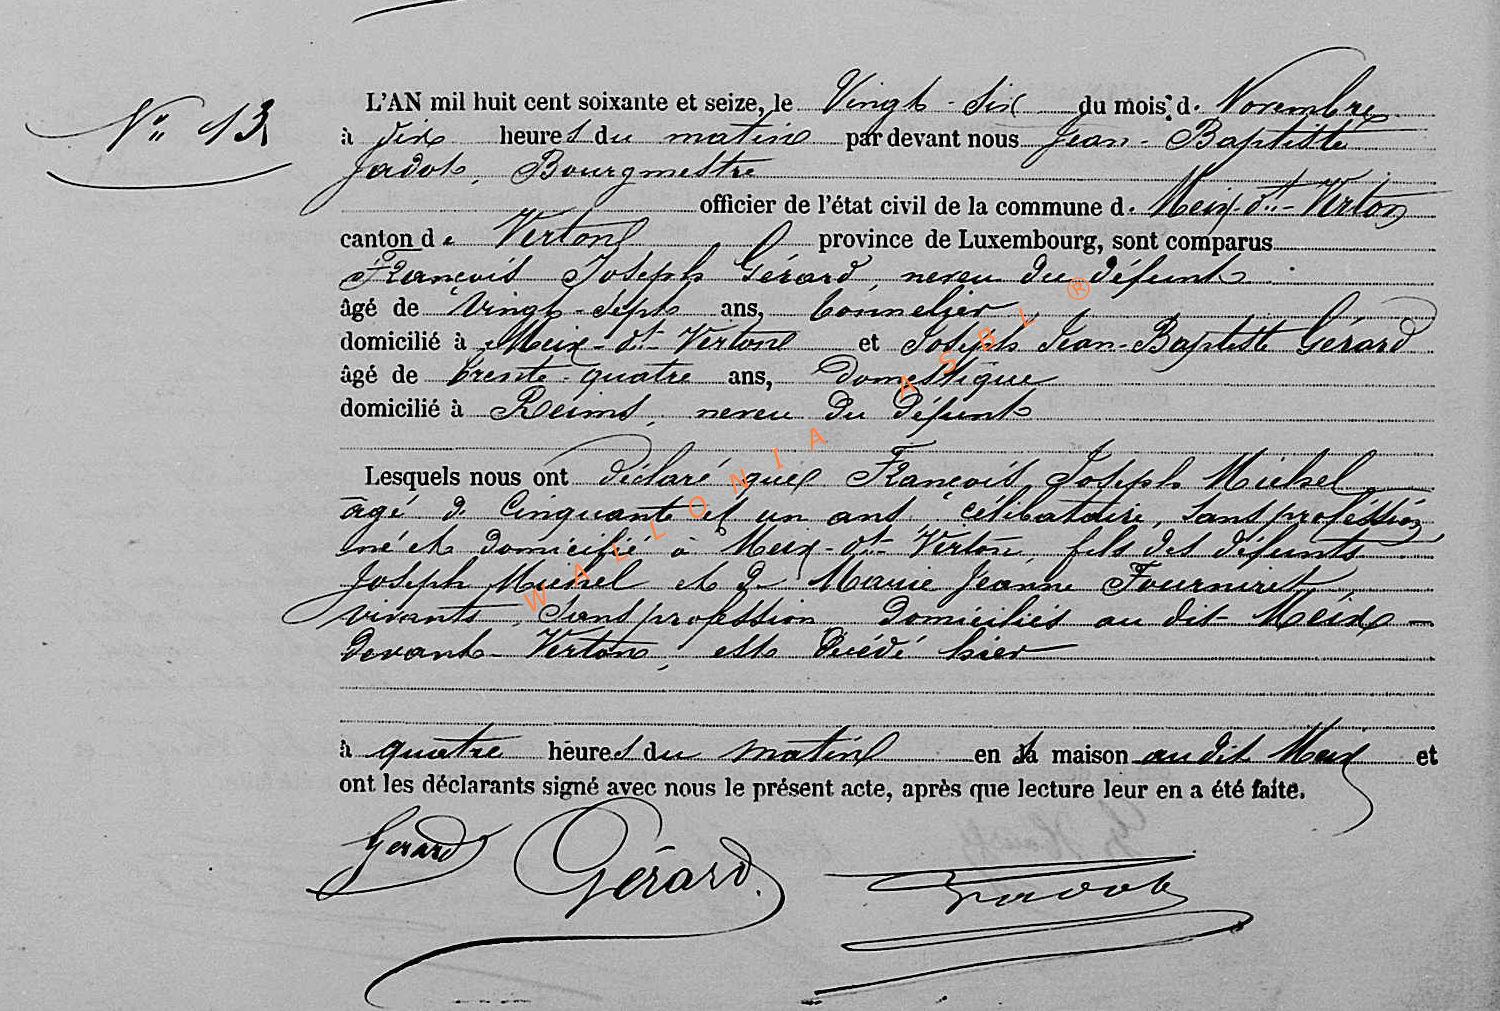 N° 13
L'AN mil huit cent soixante et seize, le Vingt-six du mois de Novembre
à dix heures du matin par devant nous Jean-Baptiste
Jadot, Bourgmestre
officier de l'état civil de la commune de Meix-dt-Virton
canton de Virton province de Luxembourg, sont comparus
François Joseph Gérard, neveu du défunt
âgé de Vingt-sept ans, tonnelier
domicilié à Meix-dt-Virton et Joseph Jean-Baptiste Gérard
âgé de trente-quatre ans, Domestique
domicilié à Reims, neveu du défunt
Lesquels nous ont déclaré que François Joseph Michel
âgé de Cinquante et un ans célibataire, sans profession
né et domicilié à Meix-dt-Virton, fils des défunts
Joseph Michel et de Marie Jeanne Fourniret
vivants, sans profession domiciliés au dit Meix-
devant-Virton, est décédé hier
à quatre heures du matin en sa maison au dit Meix et
ont les déclarants signé avec nous le présent acte, après que lecture leur en a été faite.
Gerard Gérard. Jadot
WALLONIA ASBL ®